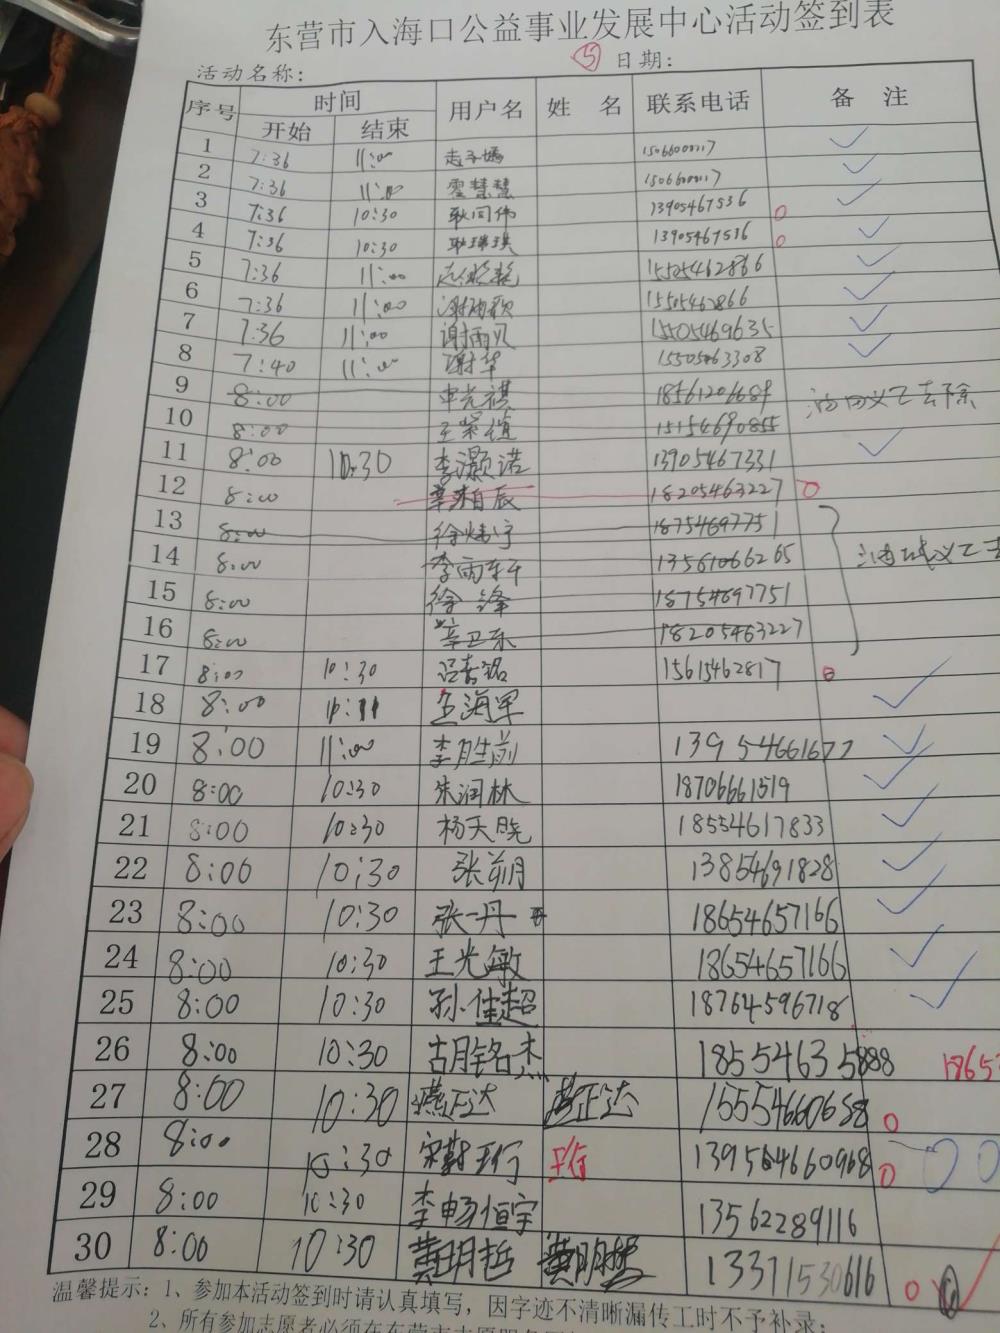 东营市入海口公益事业发展中心活动签到表
活动名称: ⑤ 日期:
序号 时间 用户名 姓 名 联系电话 备 注
开始 结束
1 7:36 11:00 1506600017
2 7:36 11:00 霍慧慧 1506600017
3 7:36 10:30 耿同伟 13905467536
4 7:36 10:30 耿瑞琪 13905467536
5 7:36 11:00 15505462866
6 7:36 11:00 谢雨歌 15505462866
7 7:36 11:00 谢雨贝 15505469635
8 7:40 11:00 谢华 15505463308
9 8:00 18561206684
10 8:00 王紫植 15154690855
11 8:00 10:30 李灏诺 13905467331
12 8:00 辛沫自辰 18205463227
13 8:00 18754697751
14 8:00 13561066265
15 8:00 徐锋 18754697751
16 8:00 辛卫东 18205463227
17 8:00 10:30 吕春铭 15615462817
18 8:00 海军
19 8:00 11:00 李胜前 13954661677
20 8:00 10:30 朱润林 18706661519
21 8:00 10:30 杨天晓 18554617833
22 8:00 10:30 张前月 13854691828
23 8:00 10:30 张一丹 18654657166
24 8:00 10:30 王光敏 18654657166
25 8:00 10:30 孙佳超 18764596718
26 8:00 10:30 胡铭杰 18554635888 1865
27 8:00 10:30 燕正达 燕正达 15554660658
28 8:00 10:30 139564660968
29 8:00 10:30 李畅恒宇 13562289116
30 8:00 10:30 黄明哲 黄明哲 13371530616
温馨提示:1、参加本活动签到时请认真填写,因字迹不清晰漏传工时不予补录;
2、所有参加志愿者必须在东营市志愿服务